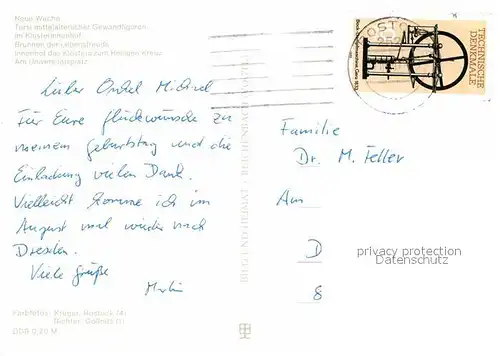 Neue Wache
Torso mittelalterlicher Gewandfiguren
im Klosterinnenhof
Brunnen der Lebensfreude
Innenhof des Klosters zum Heiligen Kreuz
Am Universitätsplatz
Lieber Onkel Michael
Für Eure Glückwünsche zu
meinem Geburtstag und die
Einladung vielen Dank.
Vielleicht komme ich im
August mal wieder nach
Dresden.
Viele Grüße
Martin
Farbfotos: Krüger, Rostock (4)
Richter, Gollnitz (1)
DDR 0,20 M
BILD UND HEIMAT · REICHENBACH
ROSTOCK
TECHNISCHE
DENKMALE
Familie
Dr. M. Feller
Am
D
8
privacy protection
Datenschutz